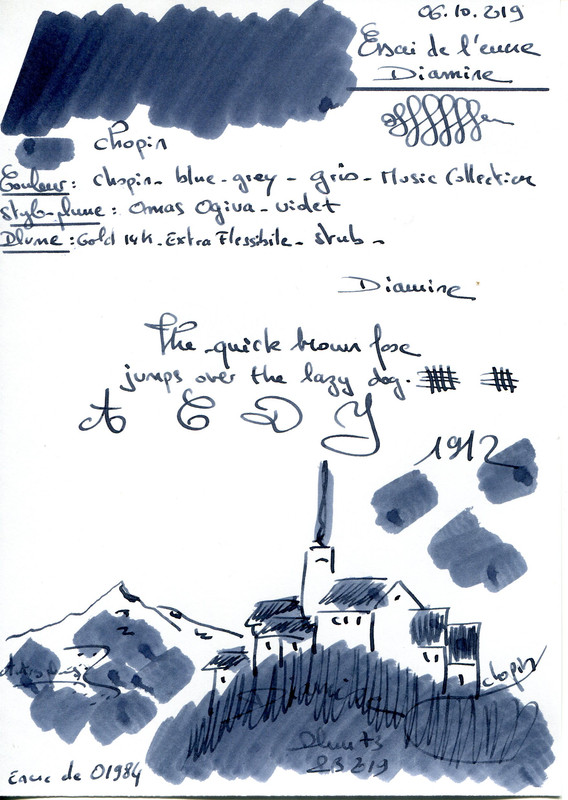 06.10.219
Essai de l'encre
Diamine
Chopin
Couleur: Chopin - blue-grey - gris - Music Collection
Stylo-plume: Omas Ogiva - violet
Plume: Gold 14K - Extra Flessibile - stub -
Diamine
The quick brown fox
jumps over the lazy dog.
A C D Y
1912
chopin
Diamine
219
Encre de 01984